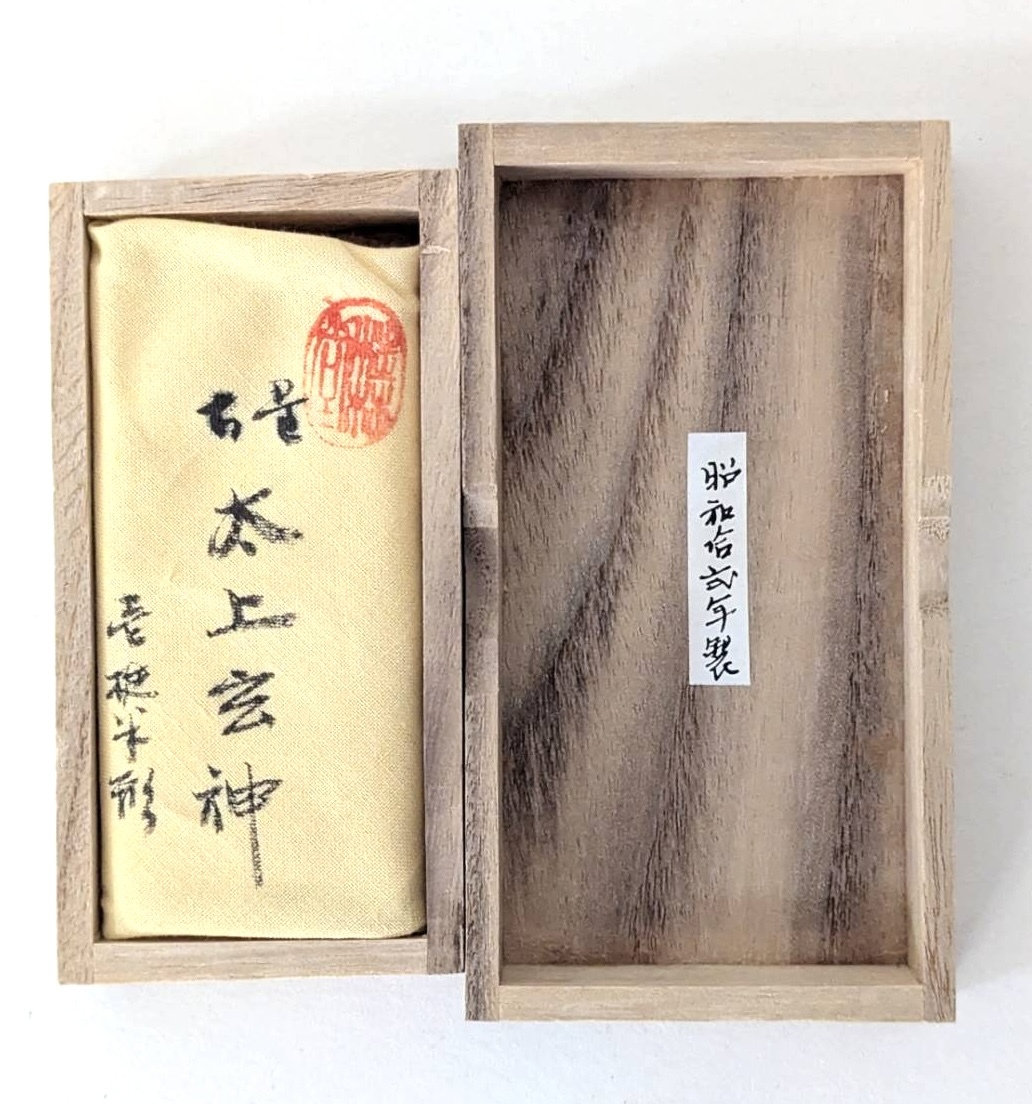 古墨
太上玄神
壱挺半形
昭和拾弐年製